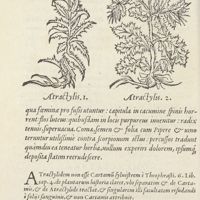 Atractylis. 1. Atractylis. 2.
qua fœminæ pro fusis utuntur: capitula in cacumine spinis hor-
rent: flos luteus: pubus dam in locis purpureus invenitur: radix
tenuis supervacua. Coma, semen & folia cum Pipere & vino
teruntur utilissime contra scorpionum ictus: percussos tradunt
quidam dum ea teneatur herba, nullum experiri dolorem, ipsumq;
deposita statim recrudescere.
ATractylidem non esse Cartamũ sylvestrem è Theophrasti. 6. Lib.
cap. 4. de plantarum historia claret, ubi separatim & de Carta-
mo, & de Atractylide tractat, & singularem illi facultatem refundendi
à foliis sanguinis, & non Cartamo attribuit.